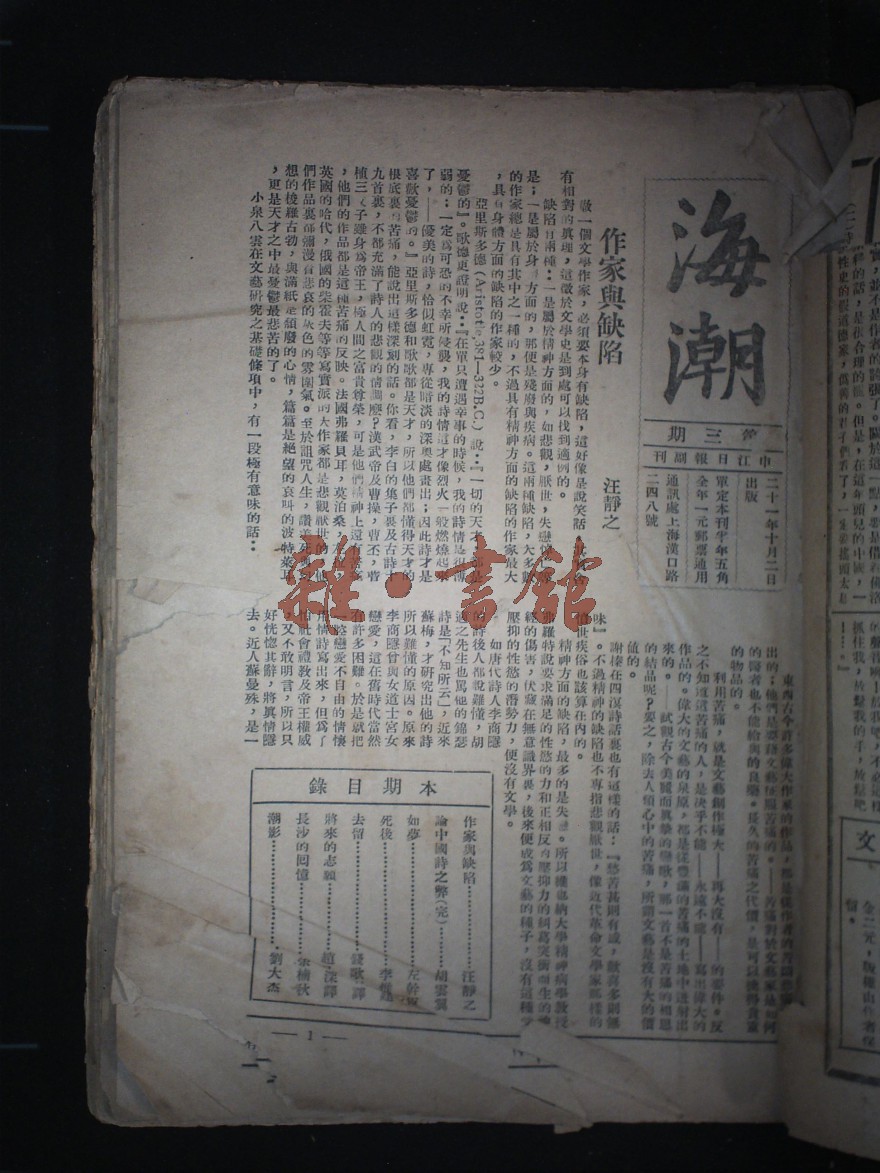 海潮
第三期
中江日報副刊
二十一年十月二日
出版
單定本刊半年五角
全年一元郵票通用
通訊處上海漢口路
二四八號
作家與缺陷
汪靜之
做一個文學作家，必須要本身有缺陷，這好像是說笑話，
有相對的真理，這徵於文學史是到處可以找到適例的。
缺陷有兩種：一是屬於精神方面的，如悲觀，厭世，失戀
是；一是屬於身方面的，那便是殘廢與疾病。這兩種缺陷，大多數
的作家總是具有其中之一種的，不過具有精神方面的缺陷的作家最大
，具有身體方面的缺陷的作家較少。
亞里斯多德(Aristotle,381—322B.C.)說：『一切的天才都是
憂鬱的』。歌德更證明說：『在單只遭遇幸事的時候，我的詩情是很薄
弱的；一定為可恐的不幸所侵襲，我的詩情這才像烈火一般燃燒起來
了，——優美的詩，恰似虹霓，專從暗淡的深奧處畫出；因此詩才是
喜歡憂鬱的。』亞里斯多德和歌德都是天才，所以他們都懂得天才的
根底裏的苦痛，能說出這樣深刻的話。你看，李白的集子裏及古詩十
九首裏，不都充滿了詩人的悲觀的情調麼？漢武帝及曹操，曹丕，曹
植三父子雖身為帝王，極人間之富貴尊榮，可是他們精神上還有
，他們的作品都是這種苦痛的反映。法國弗羅貝耳，莫泊桑，左拉
英國的哈代，俄國的柴霍夫等等寫實派的大作家都是悲觀厭世的，他
們作品裏都彌漫着悲哀的灰色的雰圍氣。至於詛咒人生，讚美死
想的梭羅古勃，與滿紙是頹廢的心情，篇篇是絕望的哀叫的波特萊耳
，更是天才之中最憂鬱最悲苦的了。
小泉八雲在文藝研究之基礎條項中，有一段極有意味的話：
東西古今許多偉大作家的作品，都是從作者的苦
出的；他們是要藉文藝
的醫者也不能給與的良藥。長久的苦痛之代價，是可以換得貴重
的物品的。
利用苦痛，就是文藝創作極大——再大沒有——的要件。反
之不知道這苦痛的人，是決乎不能——永遠不能——寫出偉大的
作品的。偉大的文藝的泉原，都是從豐滿的苦痛的土地中迸射出
來的。——試觀古今美麗而真摯的戀歌，那一首不是苦痛的相思
的結品呢？要之，除去人類心中的苦痛，所謂文藝是沒有大的價
值的。
謝榛在四溟詩話裏也有這樣的話：『愁苦甚則有感，歡喜多則無
味』。不過精神的缺陷也不專指悲觀厭世，像近代革命文學家那樣的
世疾俗也該算在內的。
精神方面的缺陷，最多的是失戀。所以維也納大學精神病學教授
耶羅特說要求滿足的性慾的力和正相反的壓抑力的糾葛突衝而生的
的傷害，伏藏在無意識界裏，後來便成為文藝的種子，沒有這種
壓抑的性慾的潛勢力，便沒有文學。
如唐代詩人李商隱
的詩後人都說難懂，胡
適之先生也罵他的錦瑟
詩是『不知所云』，近來
蘇梅，才研究出他的詩
所以難懂的原因。原來
李商隱曾與女道士宮女
戀愛，這在舊時代當然
有許多困難。於是就把
一些戀愛不自由的情懷
用情詩寫出來，但為了
怕社會禮教及帝王權威
，又不敢明言，所以只
好恍惚其辭，將真情隱
去。近人蘇曼殊，是一
本期目錄
作家與缺陷……汪靜之
論中國詩之弊(完)……胡雲翼
如夢……左幹臣
死後……李
去留……錢歌川譯
將來的志願……趙深譯
長沙的囘憶……張楠秋
潮影……劉大杰
— 1 —
雜·書館